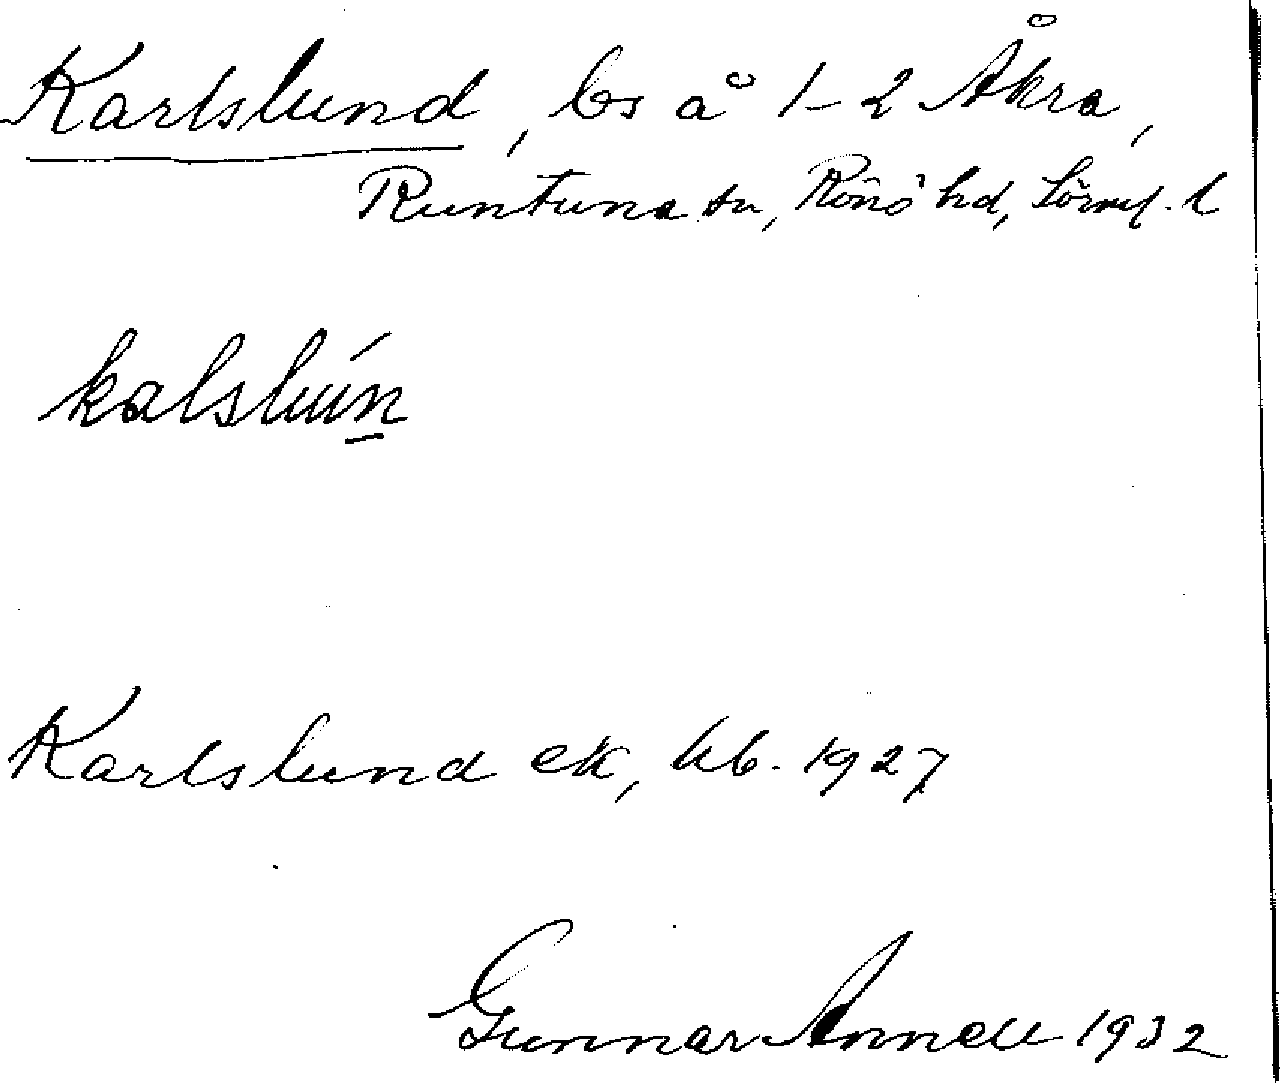 Karlslund, bs å 1-2 Åkra,
Runtuna sn, Rönö hd, Sörml. l
kalslun
Karlslund ek, kb. 1927
Gunnar Annell 1932